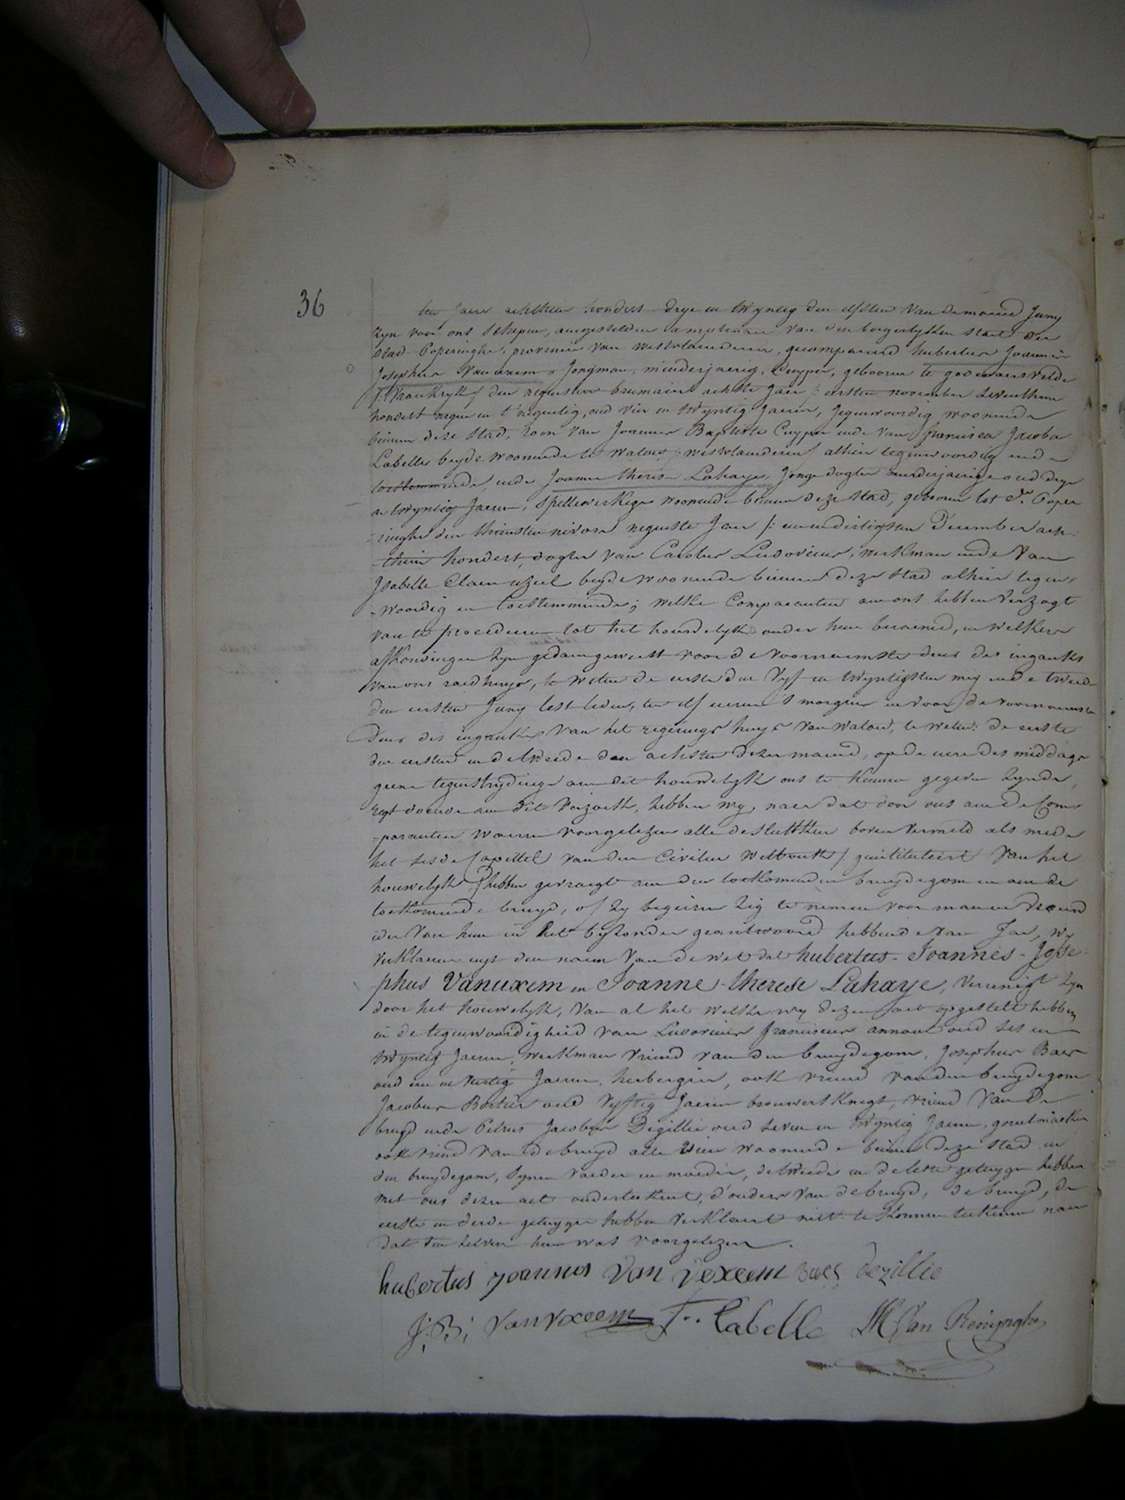 36
ten Jaere achthien hondert drye en twyntig den elfsten Van de maend Juny
zyn voor ons Schepen, amptenaer van den borgerlyken staet der
stad Poperinghe, provincie van westvlaenderen, gecompareerd hubertus Joannes
Josephus Vanuxem, Jongman, minderjaerig, Cuyper, geboren te godewaersvelde
den negensten brumaire achtste Jaer, eersten november seventhien
hondert negen en t'negentig, oud vier en twyntig Jaeren, Jegenwoordig woonende
binnen deze stad, zoon van Joannes Baptiste Cuyper ende van francisca Jacoba
Labelle beyde woonende te watou, westvlaenderen, alhier tegenwoordig ende
toestemmende ende Joanne therese Lahaye, Jonge dogter minderjaerig oud drye
en twyntig Jaeren, Spellewerkege woonende binnen deze stad, geboren tot Poper-
-ringhe den thiensten nivose negenste Jaer, eenendertigsten December ach-
-thien hondert, dogter van Carolus Ludovicus, werkman ende Van
Isabelle Clara beyde woonende binnen deze stad alhier tegen-
-woordig en toestemmende; welke Comparanten aen ons hebben verzogt
van te procederen tot het houwelyk onder hun beraemd, en welkers
afkondingen zyn gedaen geweest voor de voornaemste deur des ingancks
van ons raedhuys, te weten de eerste den Vyf en twyntigsten mey ende tweede
den eersten Juny lest leden, ten elf uren 's morgens en voor de voornaemste
Deur des ingancks Van het regerings huys van watou, te weten: de eerste
den eersten en de tweede den achtsten dezer maend, op de ure des middags
geene tegenstrydinge aen dit houwelyk ons te kennen gegeven zynde,
regt doende aen dit verzoek, hebben wy, naer dat door ons aen de Com-
-paranten waeren voorgelezen alle de stukken boven vermeld als mede
het sesde Capittel van den Civilen Wetboek, geintituleert Van het
houwelyk, hebben gevraegt aen den toekomenden bruydegom en aen de
toekomende bruyd, of zy begeiren zig te nemen voor man en vrouw
ider van hun in het byzonder geantwoord hebbende van Jae, wy
verklaeren uyt den naem Van de wet dat hubertus - Joannes - Jose-
phus Vanuxem en Joanne - therese Lahaye, Vereenigt zyn
door het houwelyk, Van al het welke wy dezen act opgestelt hebben
in de tegenwoordigheid van Ludovicus franciscus oud ses en
twyntig Jaeren, werkman vriend van den bruydegom, Josephus Baes
oud een en veertig Jaeren, herbergier, ook vriend van den bruydegom
Jacobus oud vyftig Jaeren brouwers knegt, vriend Van de
bruyd ende Petrus Jacobus Dezillie oud seven en twyntig Jaeren,
ook vriend van de bruyd alle vier woonende binnen deze stad en
den bruydegom, synen vader en moeder, de tweede en de leste getuyge hebben
met ons dezen act onderteekent, d'ouders van de bruyd, de bruyd, de
eerste en derde getuygen hebben verklaert niet te konnen teekenen naer
dat ten selven hun was voorgelezen.
hubertus joannes Van vexeem Baes dezillie
J: B: vanvxeem F.. Labelle Van Renynghe